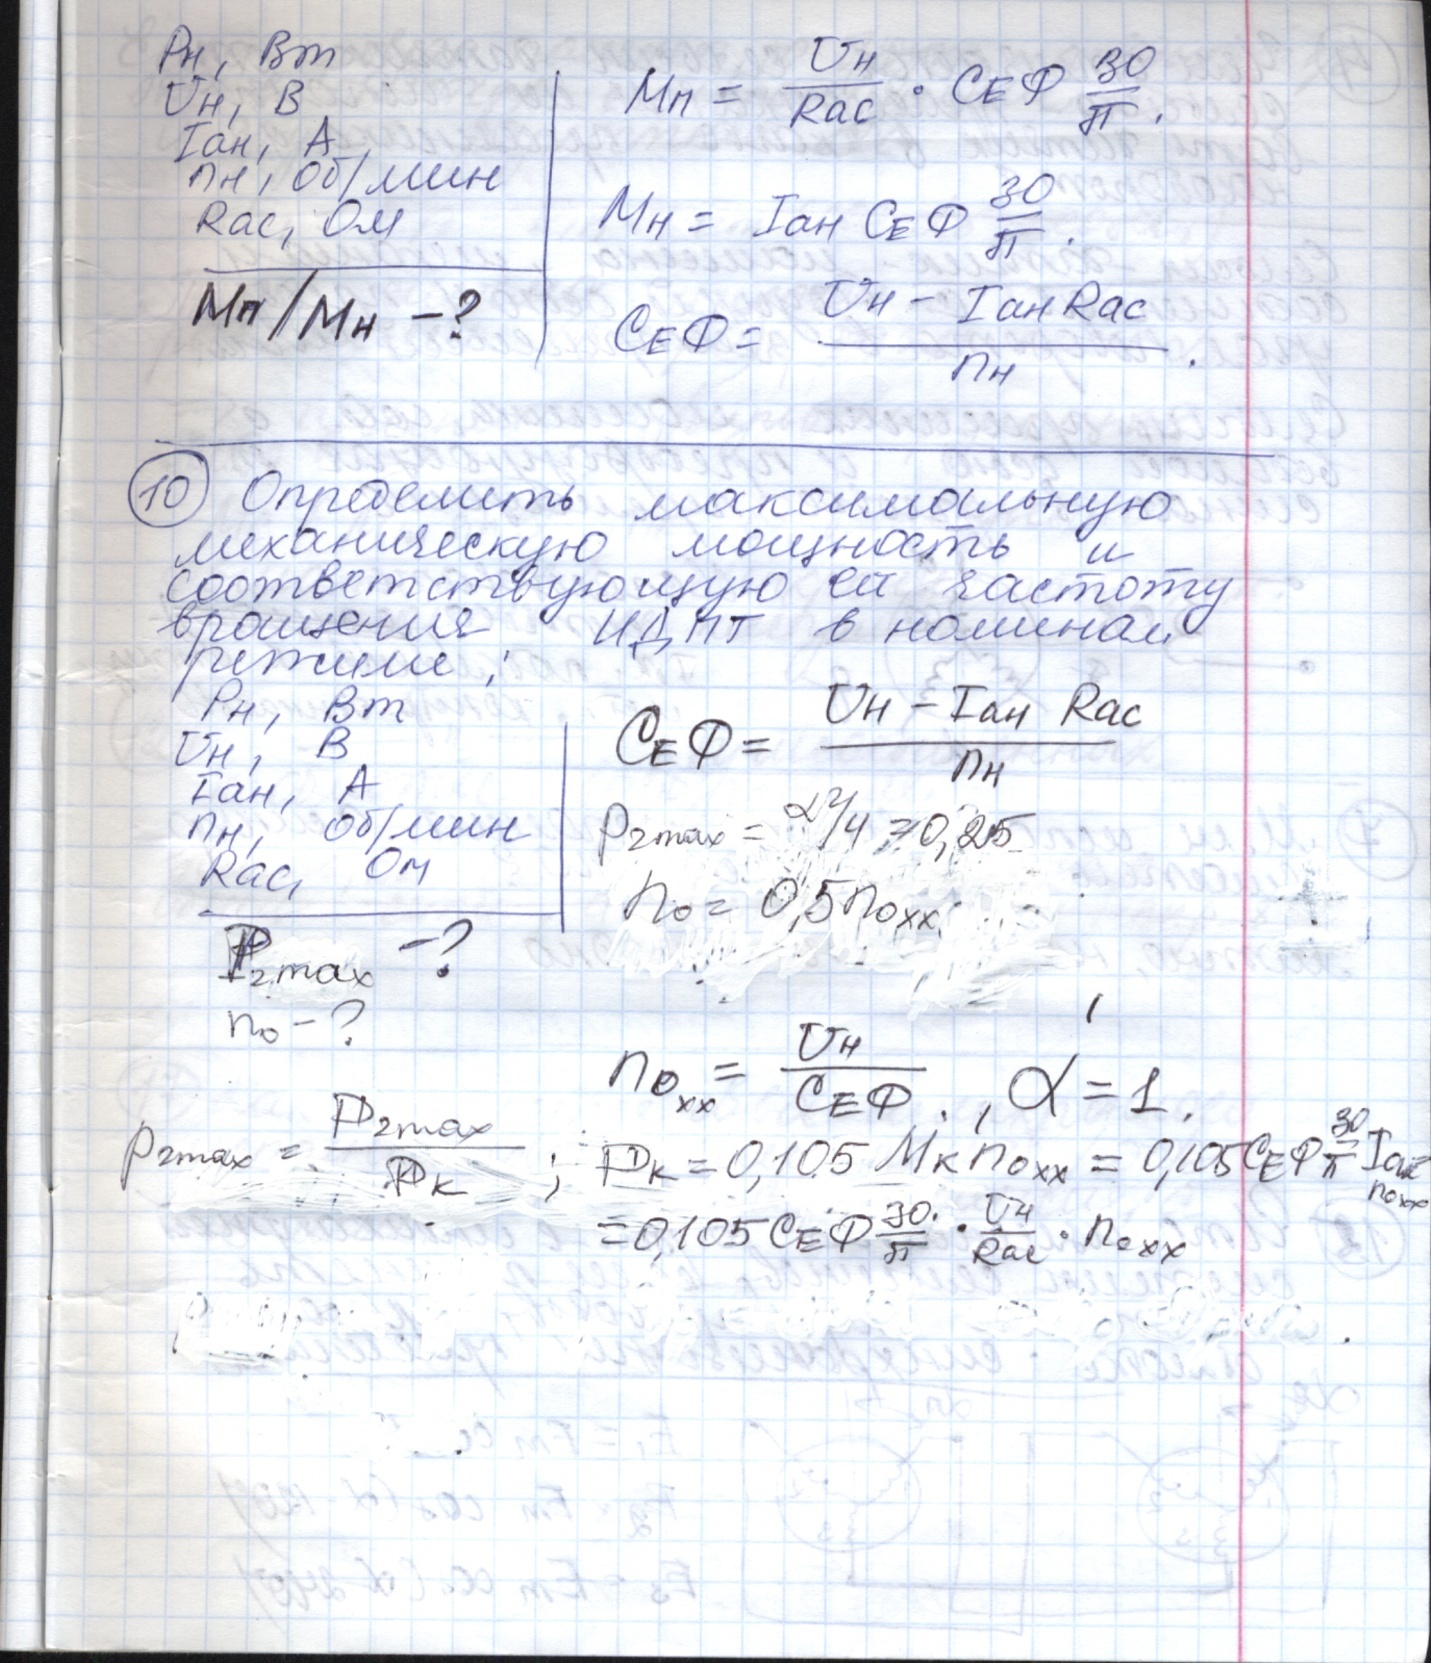 Pн, Вт
Uн, В
Iан, А
nн, об/мин
Rac, Ом
Мп/Мн -?
Мп = Uн/Rac · CEФ 30/π.
Мн = Iан CEФ 30/π.
CEФ = (Uн - Iан Rac)/nн.
10 Определить максимальную
механическую мощность и
соответствующую ей частоту
вращения ИДПТ в номинал.
режиме;
Pн, Вт
Uн, В
Iан, А
nн, об/мин
Rac, Ом
P2max -?
n0 -?
CEФ = (Uн - Iан Rac)/nн
p2max = α²/4 = 0,25
n0 = 0,5 n0xx
n0xx = Uн/CEФ., α = 1.
p2max = P2max/Pк; Pк = 0,105 Мк n0xx = 0,105 CEФ 30/π Iак n0xx
= 0,105 CEФ 30/π · Uн/Rac · n0xx